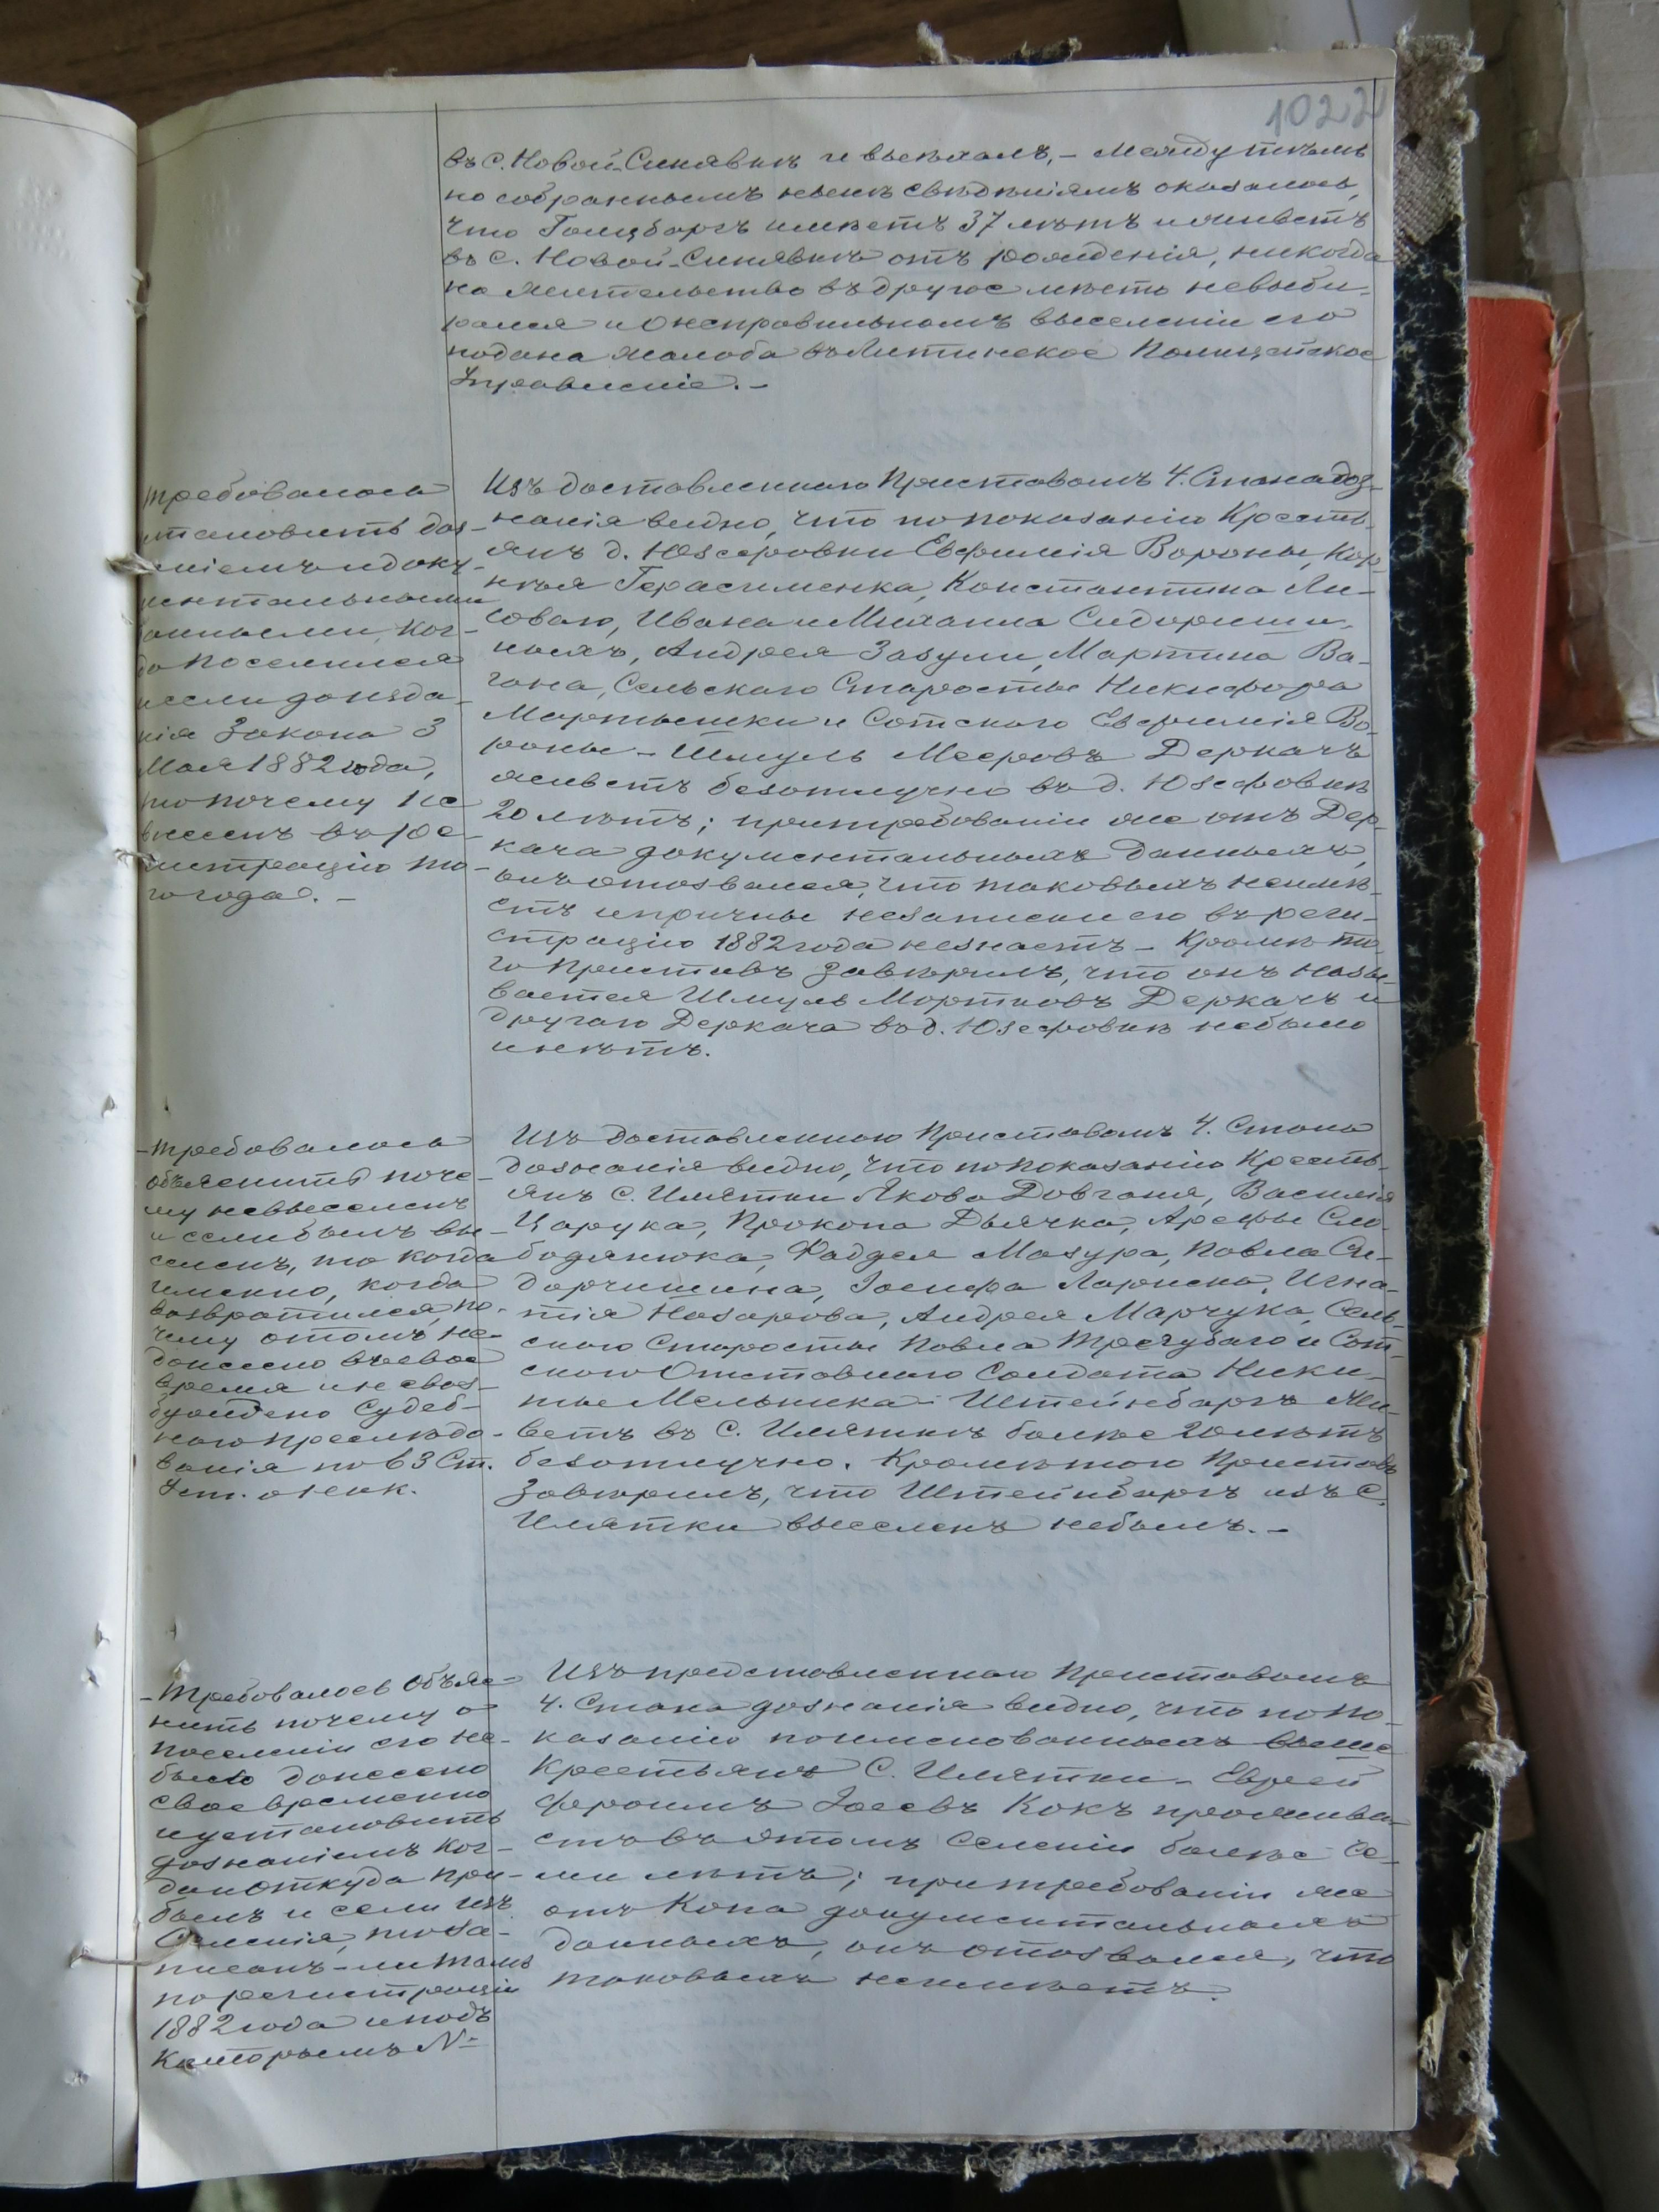 1022
въ с. Новой-Синявкѣ и выѣхалъ, – Между тѣмъ
по собраннымъ нынѣ свѣдѣніямъ оказалось,
что Голцбаргъ имѣетъ 37 лѣтъ и живетъ
въ с. Новой-Синявкѣ отъ рожденія, никогда
на жительство въ другое мѣсто невыби-
рался и о неправильномъ выселеніи его
подана жалоба въ Литинское Полицейское
Управленіе. –
требовалось
установить доз-
ніемъ и доку-
ментальными
данными, ког-
да поселился
и если до изда-
нія Закона 3
Мая 1882 года,
то почему не
внесенъ въ ре-
гистрацію то-
го года. –
Изъ доставленнаго Приставомъ 4. Стана доз-
нанія видно, что по показанію Кресть-
янъ д. Юзефовки Евфимія Вороны, Кор-
нѣя Герасименка, Константина Ли-
соваго, Ивана и Михаила Сидориши-
ныхъ, Андрея Зазули, Мартина Ва-
гана, Сельскаго Старосты Никифора
Мартышки и Сотскаго Евфимія Во-
роны – Шмуль Мееровъ Деркачъ
живетъ безотлучно въ д. Юзефовкѣ
20 лѣтъ; при требованіи же отъ Дер-
кача документальныхъ данныхъ,
онъ отозвался, что таковыхъ неимѣ-
етъ и причины незаписки его въ реги-
страцію 1882 года незнаетъ – Кромѣ то-
го Приставъ завѣрилъ, что онъ назы-
вается Шмуль Мортковъ Деркачъ и
другаго Деркача въ д. Юзефовкѣ небыло
и нѣтъ.
– требовалось
объяснить поче-
му невыселенъ
и если былъ вы-
селенъ, то когда
именно, когда
возвратился, по-
чему о томъ не-
донесено въ свое
время и не воз-
буждено Судеб-
наго преслѣдо-
ванія по 63 Ст.
Уст. о нак.
Изъ доставленнаго Приставомъ 4. Стана
дознанія видно, что по показанію Кресть-
янъ с. Илятки Якова Довганя, Василія
Царука, Прокопа Дьячка, Арефы Сло-
бодянюка, Фаддея Мазура, Павла Си-
дорчишина, Іосифа Лариска, Игна-
тія Назарова, Андрея Марчука, Сель-
скаго Старосты Павла Трегубаго и Сот-
скаго Отставнаго Солдата Ники-
ты Мельника – Штейнбаргъ жи-
ветъ въ с. Иляткѣ болѣе 20 лѣтъ
безотлучно. Кромѣ того Приставъ
завѣрилъ, что Штейнбаргъ изъ с.
Илятки выселенъ небылъ. –
– Требовалось объяс-
нить почему о
поселеніи его не-
было донесено
своевременно
и установить
дознаніемъ ког-
да и откуда при-
былъ и если изъ
Селенія, то за-
писанъ-ли тамъ
по регистраціи
1882 года и подъ
Которымъ №
Изъ представленнаго Приставомъ
4. Стана дознанія видно, что по по-
казанію поименованныхъ выше
Крестьянъ с. Илятки – Еврей
Фроимъ Іосевъ Кокъ прожива-
етъ въ этомъ селеніи болѣе се-
ми лѣтъ; при требованіи же
отъ Кока документальныхъ
данныхъ, онъ отозвался, что
таковыхъ неимѣетъ.